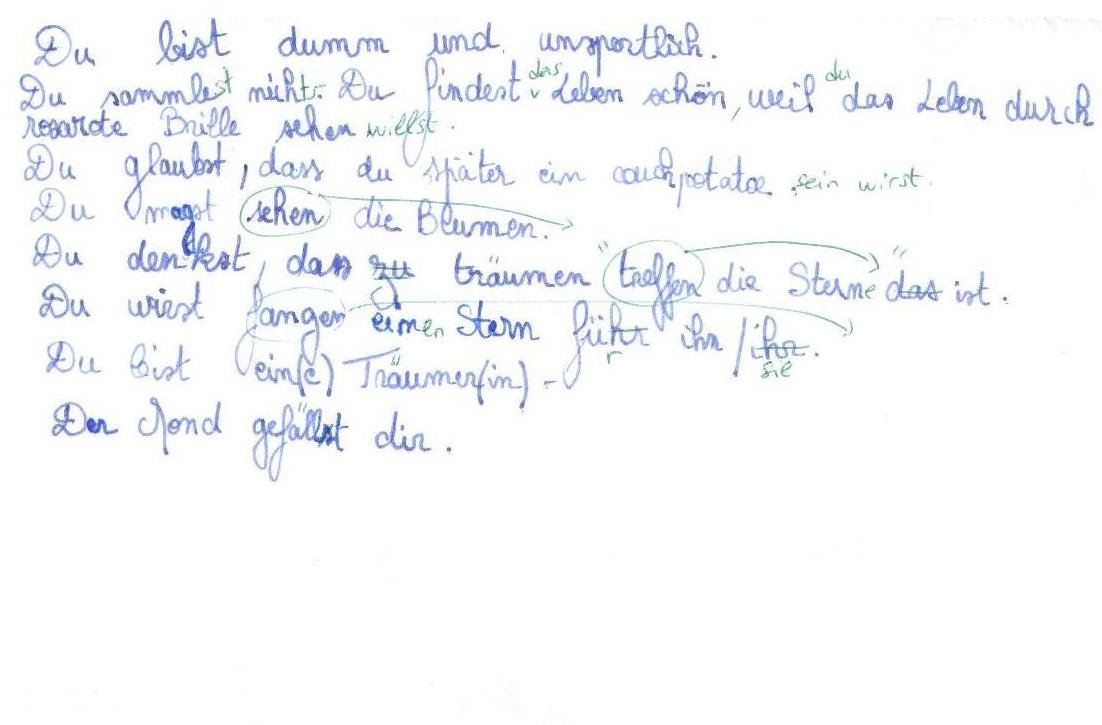 Du bist dumm und unsportlich.
Du sammlest nichts. Du findest das Leben schön, weil du das Leben durch
rosarote Brille sehen willst.
Du glaubst, dass du später ein couchpotatoe sein wirst.
Du magst sehen die Blumen.
Du denkst, dass zu träumen "treffen die Sterne" das ist.
Du wirst fangen einen Stern führ r ihn / ihr. sie
Du bist ein(e) Träumer(in).
Der Mond gefällst dir.